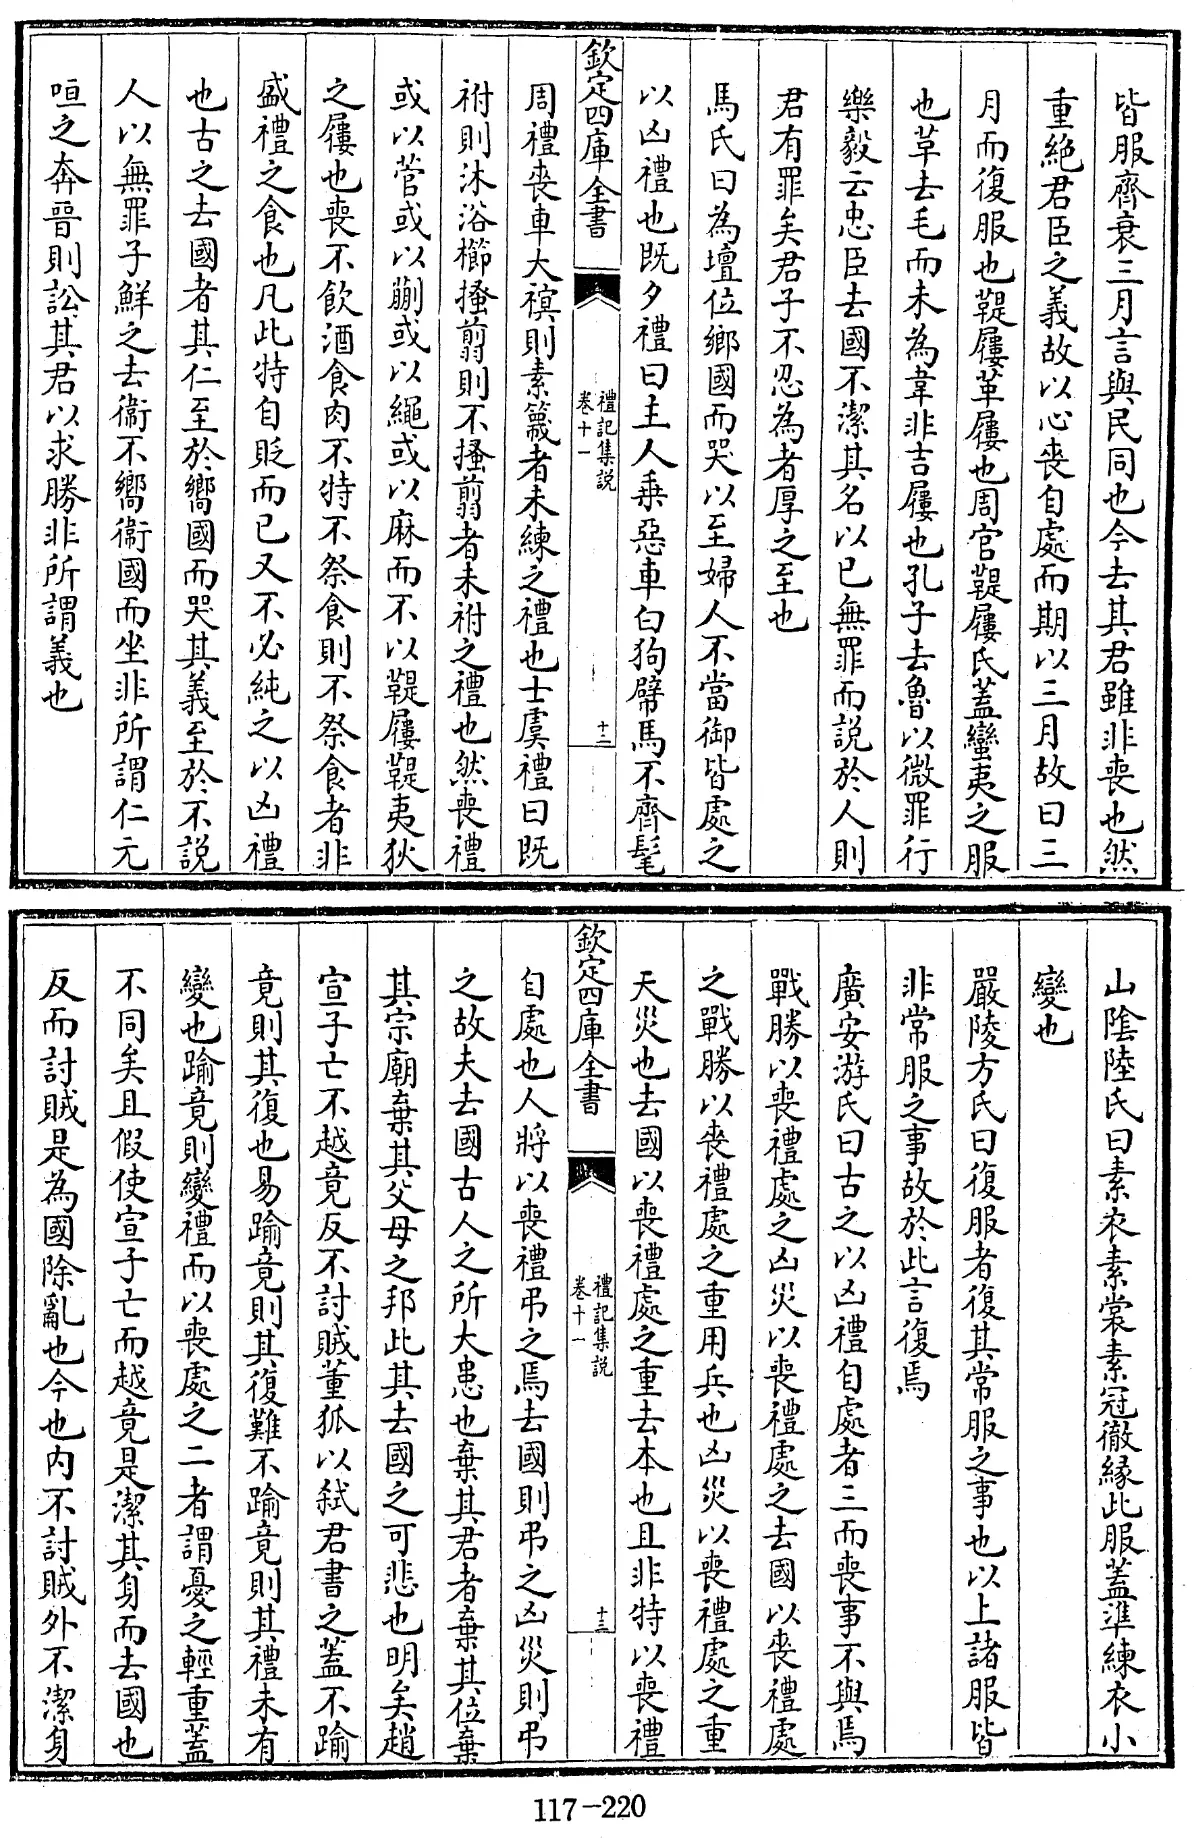 皆服齊衰三月言與民同也今去其君雖非喪也然
重絶君臣之義故以心喪自處而期以三月故曰三
月而復服也鞮屨革屨也周官鞮鞻氏蓋蠻夷之服
也革去毛而未為韋非吉屨也孔子去魯以微罪行
樂毅云忠臣去國不潔其名以已無罪而説於人則
君有罪矣君子不忍為者厚之至也
馬氏曰為壇位鄉國而哭以至婦人不當御皆處之
以凶禮也既夕禮曰主人乗惡車白狗幦馬不齊髦
欽定四庫全書
禮記集説
卷十一
十二
周禮喪車大禩則素簚者未練之禮也士虞禮曰既
祔則沐浴櫛搔翦則不搔翦者未祔之禮也然喪禮
或以菅或以蒯或以繩或以麻而不以鞮屨鞮夷狄
之屨也喪不飲酒食肉不特不祭食則不祭食者非
盛禮之食也凡此特自貶而已又不必純之以凶禮
也古之去國者其仁至於嚮國而哭其義至於不説
人以無罪子鮮之去衞不嚮衞國而坐非所謂仁元
咺之奔晉則訟其君以求勝非所謂義也
山陰陸氏曰素衣素裳素冠徹緣此服蓋準練衣小
變也
嚴陵方氏曰復服者復其常服之事也以上諸服皆
非常服之事故於此言復焉
廣安游氏曰古之以凶禮自處者三而喪事不與焉
戰勝以喪禮處之凶災以喪禮處之去國以喪禮處
之戰勝以喪禮處之重用兵也凶災以喪禮處之重
天災也去國以喪禮處之重去本也且非特以喪禮
欽定四庫全書
禮記集説
卷十一
十三
自處也人將以喪禮弔之焉去國則弔之凶災則弔
之故夫去國古人之所大患也棄其君者棄其位棄
其宗廟棄其父母之邦此其去國之可悲也明矣趙
宣子亡不越竟反不討賊董狐以弑君書之蓋不踰
竟則其復也易踰竟則其復難不踰竟則其禮未有
變也踰竟則變禮而以喪處之二者謂憂之輕重蓋
不同矣且假使宣子亡而越竟是潔其身而去國也
反而討賊是為國除亂也今也内不討賊外不潔身
117-220